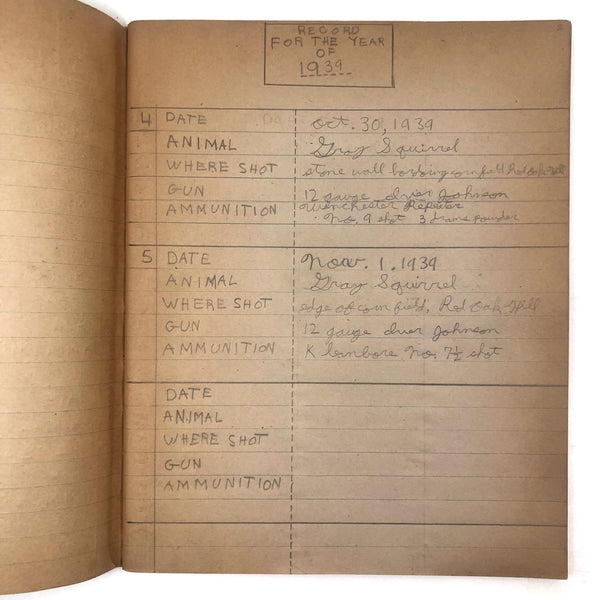 RECORD
FOR THE YEAR
OF
1939
4 DATE oct. 30, 1939
ANIMAL Gray Squirrel
WHERE SHOT stone wall cornfield Red Oak Hill
GUN 12 gauge Iver Johnson
AMMUNITION Winchester Repeater
No. 9 shot 3 drams powder
5 DATE Nov. 1. 1939
ANIMAL Gray Squirrel
WHERE SHOT edge of corn field, Red Oak Hill
GUN 12 gauge Iver Johnson
AMMUNITION No. 7½ shot
DATE
ANIMAL
WHERE SHOT
GUN
AMMUNITION